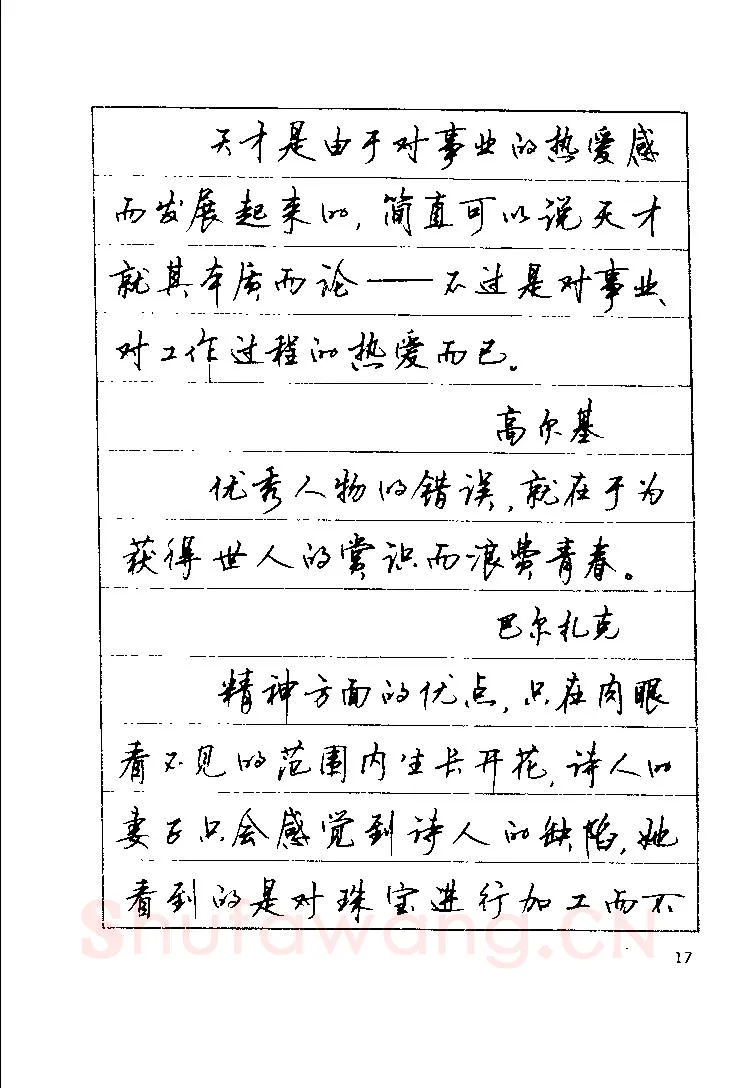 天才是由于对事业的热爱感
而发展起来的,简直可以说天才
就其本质而论——不过是对事业、
对工作过程的热爱而已。
高尔基
优秀人物的错误,就在于为
获得世人的赏识而浪费青春。
巴尔扎克
精神方面的优点,只在肉眼
看不见的范围内生长开花,诗人的
妻子只会感觉到诗人的缺陷,她
看到的是对珠宝进行加工而不
Shufawang.CN
17